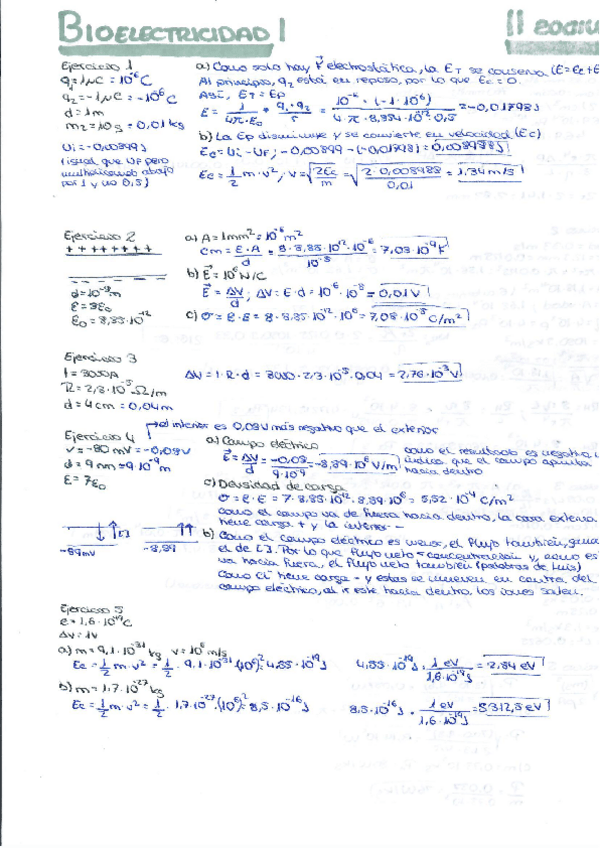 BIOELECTRICIDAD 1
Ejercicio 1
q₁ = 1μC = 10⁻⁶ C
q₂ = -1μC = -10⁻⁶ C
d = 1m
m₂ = 10g = 0,01 kg
Ui = -0,00899J
(igual que UF pero
multiplicando abajo
por 1 y no 0,5)
a) Como solo hay F electrostática, la ET se conserva (E = Ec + E
Al principio, q₂ está en reposo, por lo que Ec = 0.
Así, ET = Ep
E = 1/4π·ε₀ · q₁·q₂/r = 10⁻⁶·(-1·10⁻⁶)/4·π·8,854·10⁻¹²·0,5 = -0,01798J
b) La Ep disminuye y se convierte en velocidad (Ec)
Ec = Ui - UF; -0,00899 - (-0,017981) = 0,008988J
Ec = 1/2 m·v²; v = √2Ec/m = √2·0,008988/0,01 = 1,34 m/s
Ejercicio 2
+ + + + + + + +
d = 10⁻⁸ m
ε = 8ε₀
ε₀ = 8,85·10⁻¹²
a) A = 1mm² = 10⁻⁶ m²
Cm = ε·A/d = 8·8,85·10⁻¹²·10⁻⁶/10⁻⁸ = 7,08·10⁻⁹ F
b) E = 10⁶ N/C
E = ΔV/d; ΔV = E·d = 10⁶·10⁻⁸ = 0,01V
c) σ = ε·E = 8·8,85·10⁻¹²·10⁶ = 7,08·10⁻⁵ C/m²
Ejercicio 3
I = 3000A
R = 2,3·10⁻⁵ Ω/m
d = 4cm = 0,04m
ΔV = I·R·d = 3000·2,3·10⁻⁵·0,04 = 2,76·10⁻³ V
el interior es 0,08V más negativo que el exterior
Ejercicio 4
V = -80 mV = -0,08V
d = 9 nm = 9·10⁻⁹ m
ε = 7ε₀
a) Campo eléctrico
E = ΔV/d = -0,08/9·10⁻⁹ = -8,89·10⁶ V/m
como el resultado es negativo,
indica que el campo apunta
hacia dentro
c) Densidad de carga
σ = ε·E = 7·8,85·10⁻¹²·8,89·10⁶ = 5,52·10⁻⁴ C/m²
como el campo va de fuera hacia dentro, la cara externa
tiene carga + y la interior -
[ ]
-89mV
-8,89
b) Como el campo eléctrico es menor, el flujo también, gana
el de [ ]. Por lo que flujo neto = concentración y, como es
va hacia fuera, el flujo neto también (palabras de Luis)
Como Cl⁻ tiene carga - y estas se mueven en contra del
campo eléctrico, al ir este hacia dentro, los iones salen.
Ejercicio 5
e = 1,6·10⁻¹⁹ C
ΔV = 1V
a) m = 9,1·10⁻³¹ kg v = 10⁶ m/s
Ec = 1/2 m·v² = 1/2 · 9,1·10⁻³¹·(10⁶)² = 4,55·10⁻¹⁹ J 4,55·10⁻¹⁹ J · 1 eV/1,6·10⁻¹⁹ J = 2,84 eV
b) m = 1,7·10⁻²⁷ kg
Ec = 1/2 m·v² = 1/2 · 1,7·10⁻²⁷·(10⁶)² = 8,5·10⁻¹⁶ J 8,5·10⁻¹⁶ J · 1 eV/1,6·10⁻¹⁹ J = 5312,5 eV